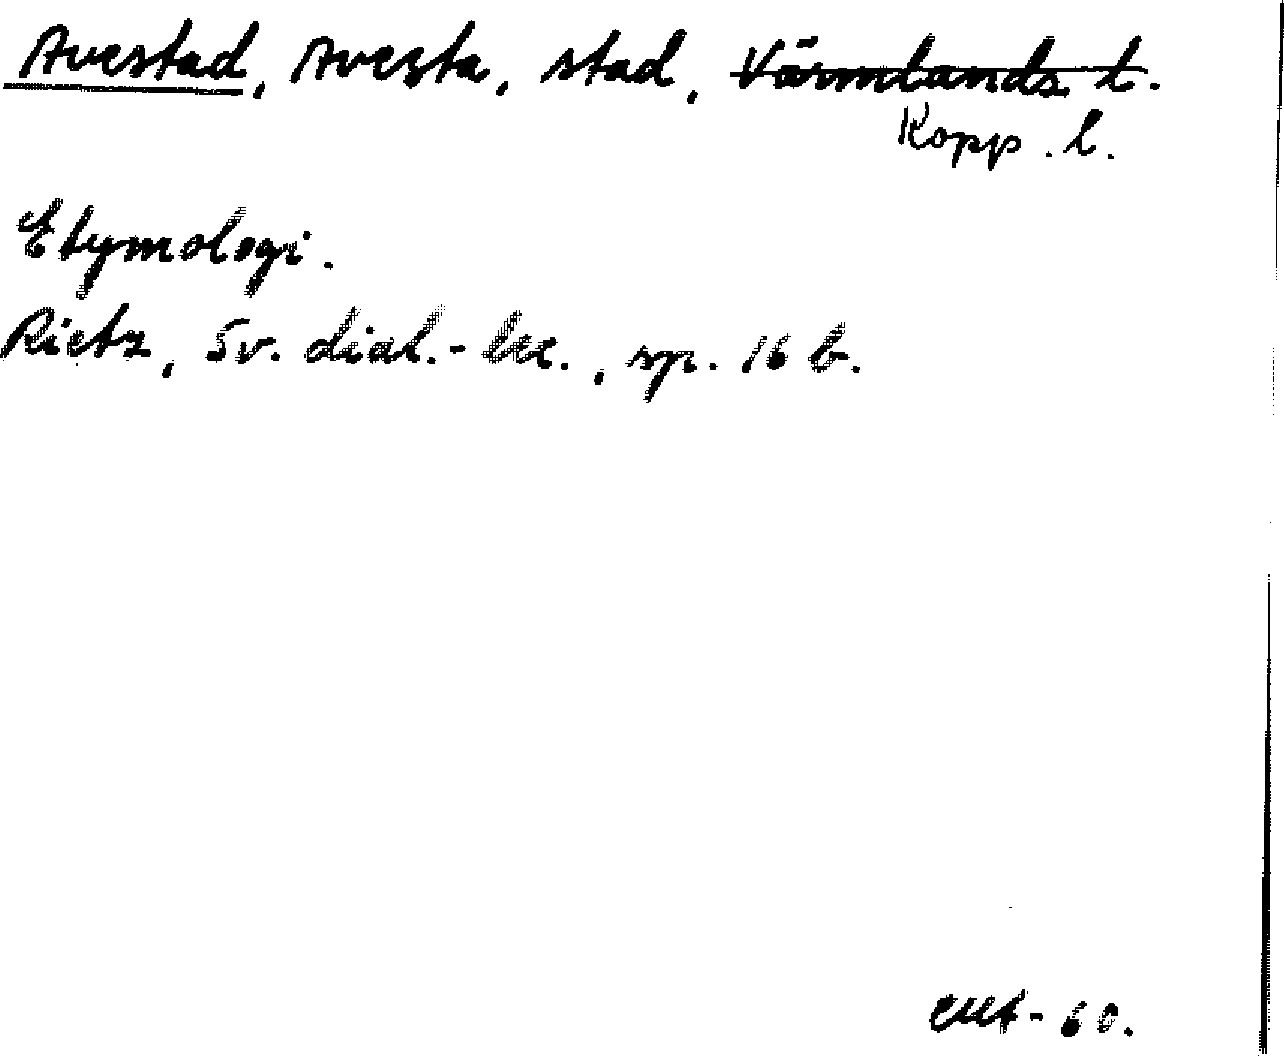 Avestad, Avesta, stad, Värmlands l.
Kopp. l.
Etymologi.
Rietz, Sv. dial.-lex., sp. 16 b.
60.